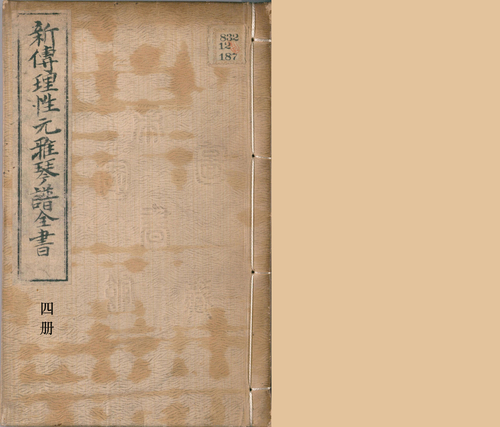 新傳理性元雅琴譜全書
四册
832
12
187